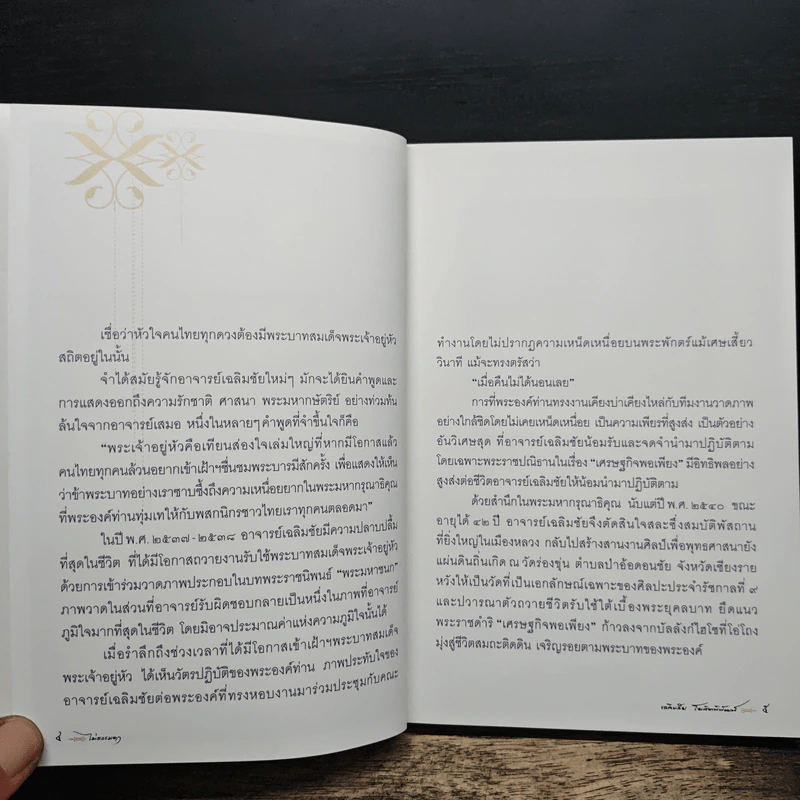 เชื่อว่าหัวใจคนไทยทุกดวงต้องมีพระบาทสมเด็จพระเจ้าอยู่หัว
สถิตอยู่ในนั้น
จำได้สมัยรู้จักอาจารย์เฉลิมชัยใหม่ๆ มักจะได้ยินคำพูดและ
การแสดงออกถึงความรักชาติ ศาสนา พระมหากษัตริย์ อย่างท่วมท้น
ล้นใจจากอาจารย์เสมอ หนึ่งในหลายๆ คำพูดที่จำขึ้นใจก็คือ
"พระเจ้าอยู่หัวคือเทียนส่องใจเล่มใหญ่ที่หากมีโอกาสแล้ว
คนไทยทุกคนล้วนอยากเข้าเฝ้าฯชื่นชมพระบารมีสักครั้ง เพื่อแสดงให้เห็น
ว่าข้าพระบาทอย่างเราซาบซึ้งถึงความเหนื่อยยากในพระมหากรุณาธิคุณ
ที่พระองค์ท่านทุ่มเทให้กับพสกนิกรชาวไทยเราทุกคนตลอดมา"
ในปี พ.ศ. ๒๕๓๗-๒๕๓๘ อาจารย์เฉลิมชัยมีความปลาบปลื้ม
ที่สุดในชีวิต ที่ได้มีโอกาสถวายงานรับใช้พระบาทสมเด็จพระเจ้าอยู่หัว
ด้วยการเข้าร่วมวาดภาพประกอบในบทพระราชนิพนธ์ "พระมหาชนก"
ภาพวาดในส่วนที่อาจารย์รับผิดชอบกลายเป็นหนึ่งในภาพที่อาจารย์
ภูมิใจมากที่สุดในชีวิต โดยมิอาจประมาณค่าแห่งความภูมิใจนั้นได้
เมื่อรำลึกถึงช่วงเวลาที่ได้มีโอกาสเข้าเฝ้าฯพระบาทสมเด็จ
พระเจ้าอยู่หัว ได้เห็นวัตรปฏิบัติของพระองค์ท่าน ภาพประทับใจของ
อาจารย์เฉลิมชัยต่อพระองค์ที่ทรงหอบงานมาร่วมประชุมกับคณะ
๔ ไม่ธรรมดา
ทำงานโดยไม่ปรากฏความเหน็ดเหนื่อยบนพระพักตร์แม้เศษเสี้ยว
วินาที แม้จะทรงตรัสว่า
"เมื่อคืนไม่ได้นอนเลย"
การที่พระองค์ท่านทรงงานเคียงบ่าเคียงไหล่กับทีมงานวาดภาพ
อย่างใกล้ชิดโดยไม่เคยเหน็ดเหนื่อย เป็นความเพียรที่สูงส่ง เป็นตัวอย่าง
อันวิเศษสุด ที่อาจารย์เฉลิมชัยน้อมรับและจดจำนำมาปฏิบัติตาม
โดยเฉพาะพระราชปณิธานในเรื่อง "เศรษฐกิจพอเพียง" มีอิทธิพลอย่าง
สูงส่งต่อชีวิตอาจารย์เฉลิมชัยให้น้อมนำมาปฏิบัติตาม
ด้วยสำนึกในพระมหากรุณาธิคุณ นับแต่ปี พ.ศ. ๒๕๔๐ ขณะ
อายุได้ ๔๒ ปี อาจารย์เฉลิมชัยจึงตัดสินใจสละซึ่งสมบัติพัสถาน
ที่ยิ่งใหญ่ในเมืองหลวง กลับไปสร้างสานงานศิลป์เพื่อพุทธศาสนายัง
แผ่นดินถิ่นเกิด ณ วัดร่องขุ่น ตำบลป่าอ้อดอนชัย จังหวัดเชียงราย
หวังให้เป็นวัดที่เป็นเอกลักษณ์เฉพาะของศิลปะประจำรัชกาลที่ ๙
และปวารณาตัวถวายชีวิตรับใช้ใต้เบื้องพระยุคลบาท ยึดแนว
พระราชดำริ "เศรษฐกิจพอเพียง" ก้าวลงจากบัลลังก์ไฮโซที่โอ่โถง
มุ่งสู่ชีวิตสมถะติดดิน เจริญรอยตามพระบาทของพระองค์
เฉลิมชัย โฆษิตพิพัฒน์ ๕